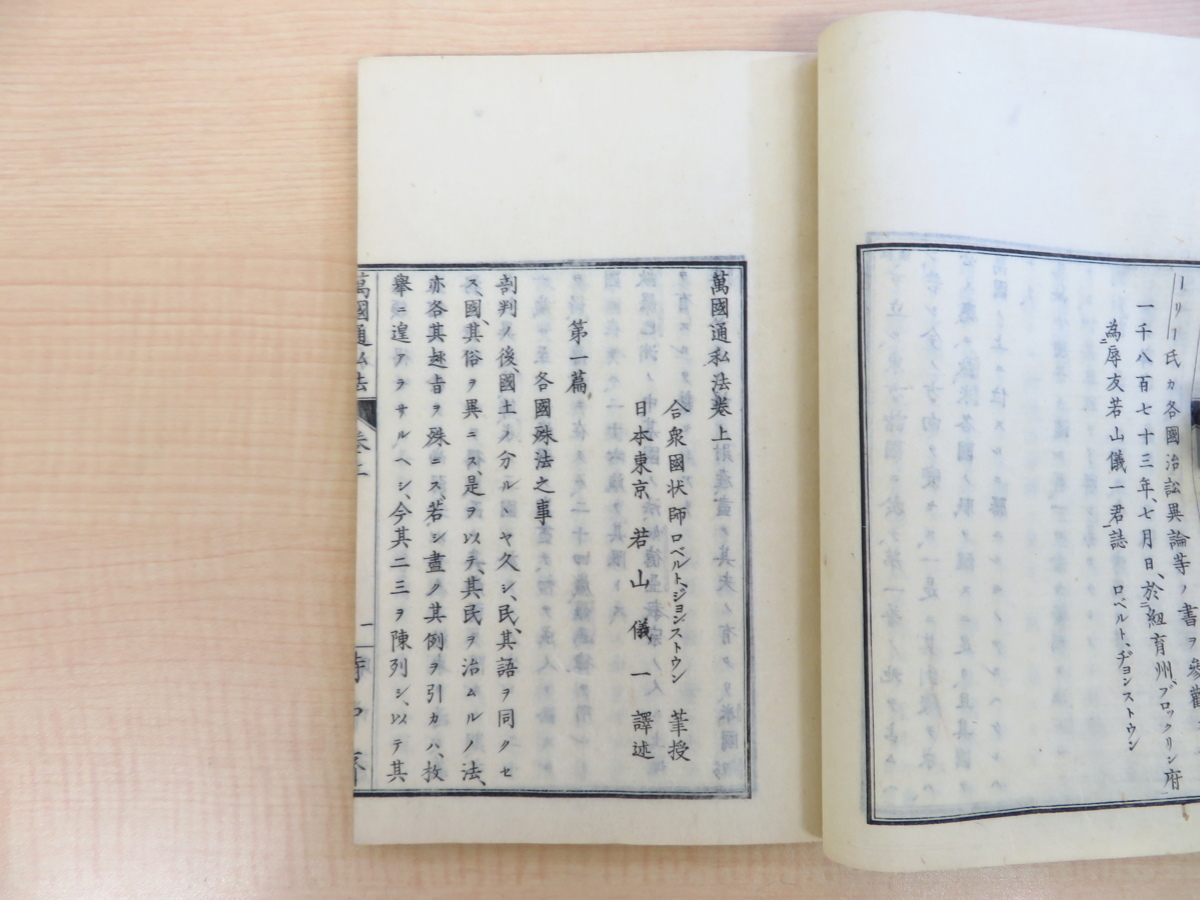 トリー氏カ各國治訟異論等ノ書ヲ參觀
一千八百七十三年、七月日、於紐育州、ブロックリン府
為辱友若山儀一君誌　ロベルト、ヂョンストウン
萬國通私法卷上
合衆國状師ロベルト、ジョンストウン　筆授
日本東京　若山儀一　譯述
第一篇
各國殊法之事
剖判ノ後、國土ノ分ルヽヤ久シ、民、其語ヲ同クセ
ス、國、其俗ヲ異ニス、是ヲ以テ、其民ヲ治ムルノ法、
亦各其趣旨ヲ殊ニス、若シ盡ク其例ヲ引カハ、枚
舉ニ遑アラサルヘシ、今其二三ヲ陳列シ、以テ其
萬國通私法